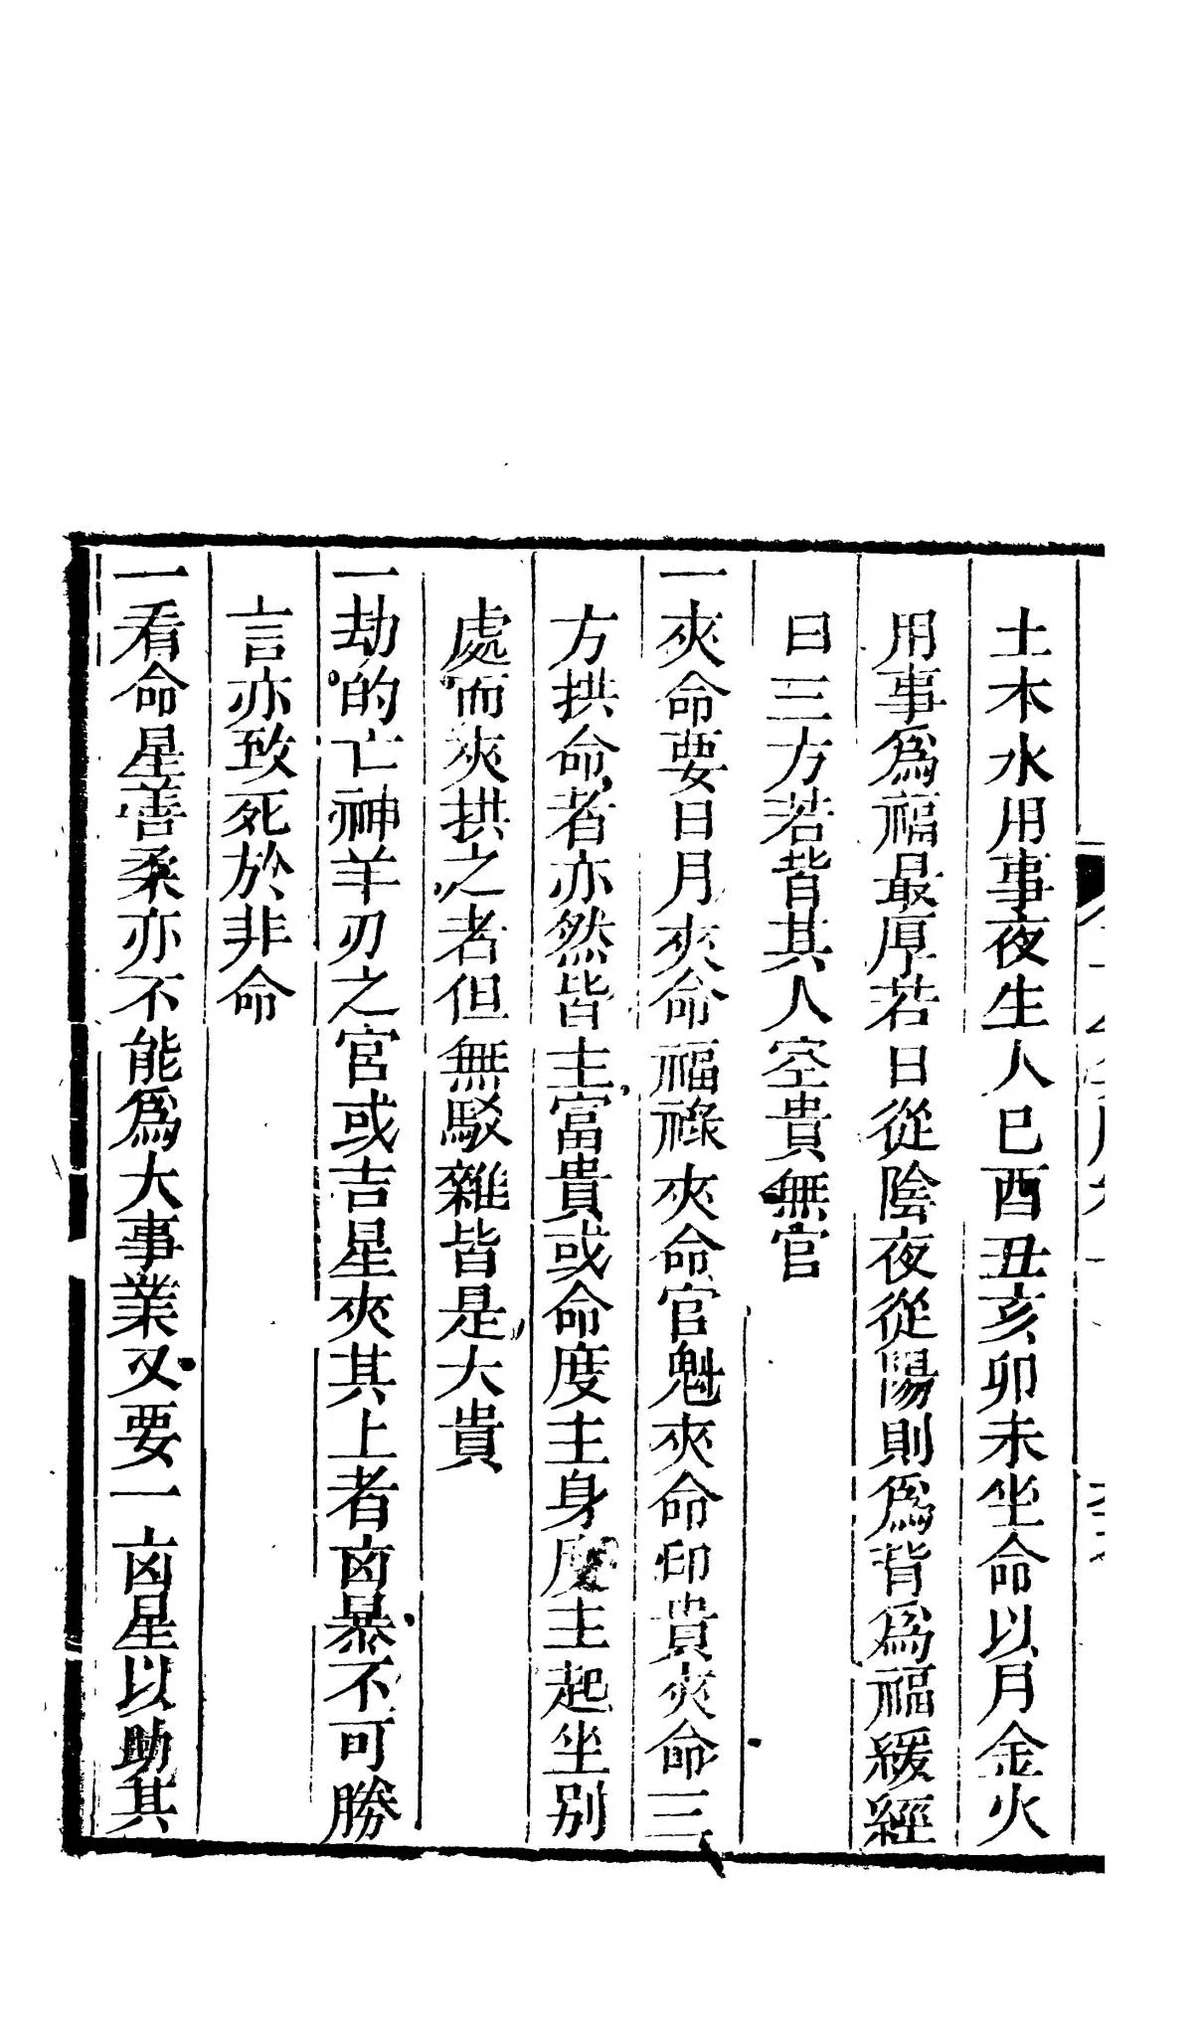 土木水用事夜生人巳酉丑亥卯未坐命以月金火
用事爲福最厚若日從陰夜從陽則爲背爲福緩經
曰三方若背其人空貴無官
一夾命要日月夾命福祿夾命官魁夾命印貴夾命三
方拱命者亦然皆主富貴或命度主身度主起坐别
處而夾拱之者但無駁雜皆是大貴
一劫的亡神羊刃之宮或吉星夾其上者㐫暴不可勝
言亦致死於非命
一看命星善柔亦不能爲大事業又要一㐫星以助其